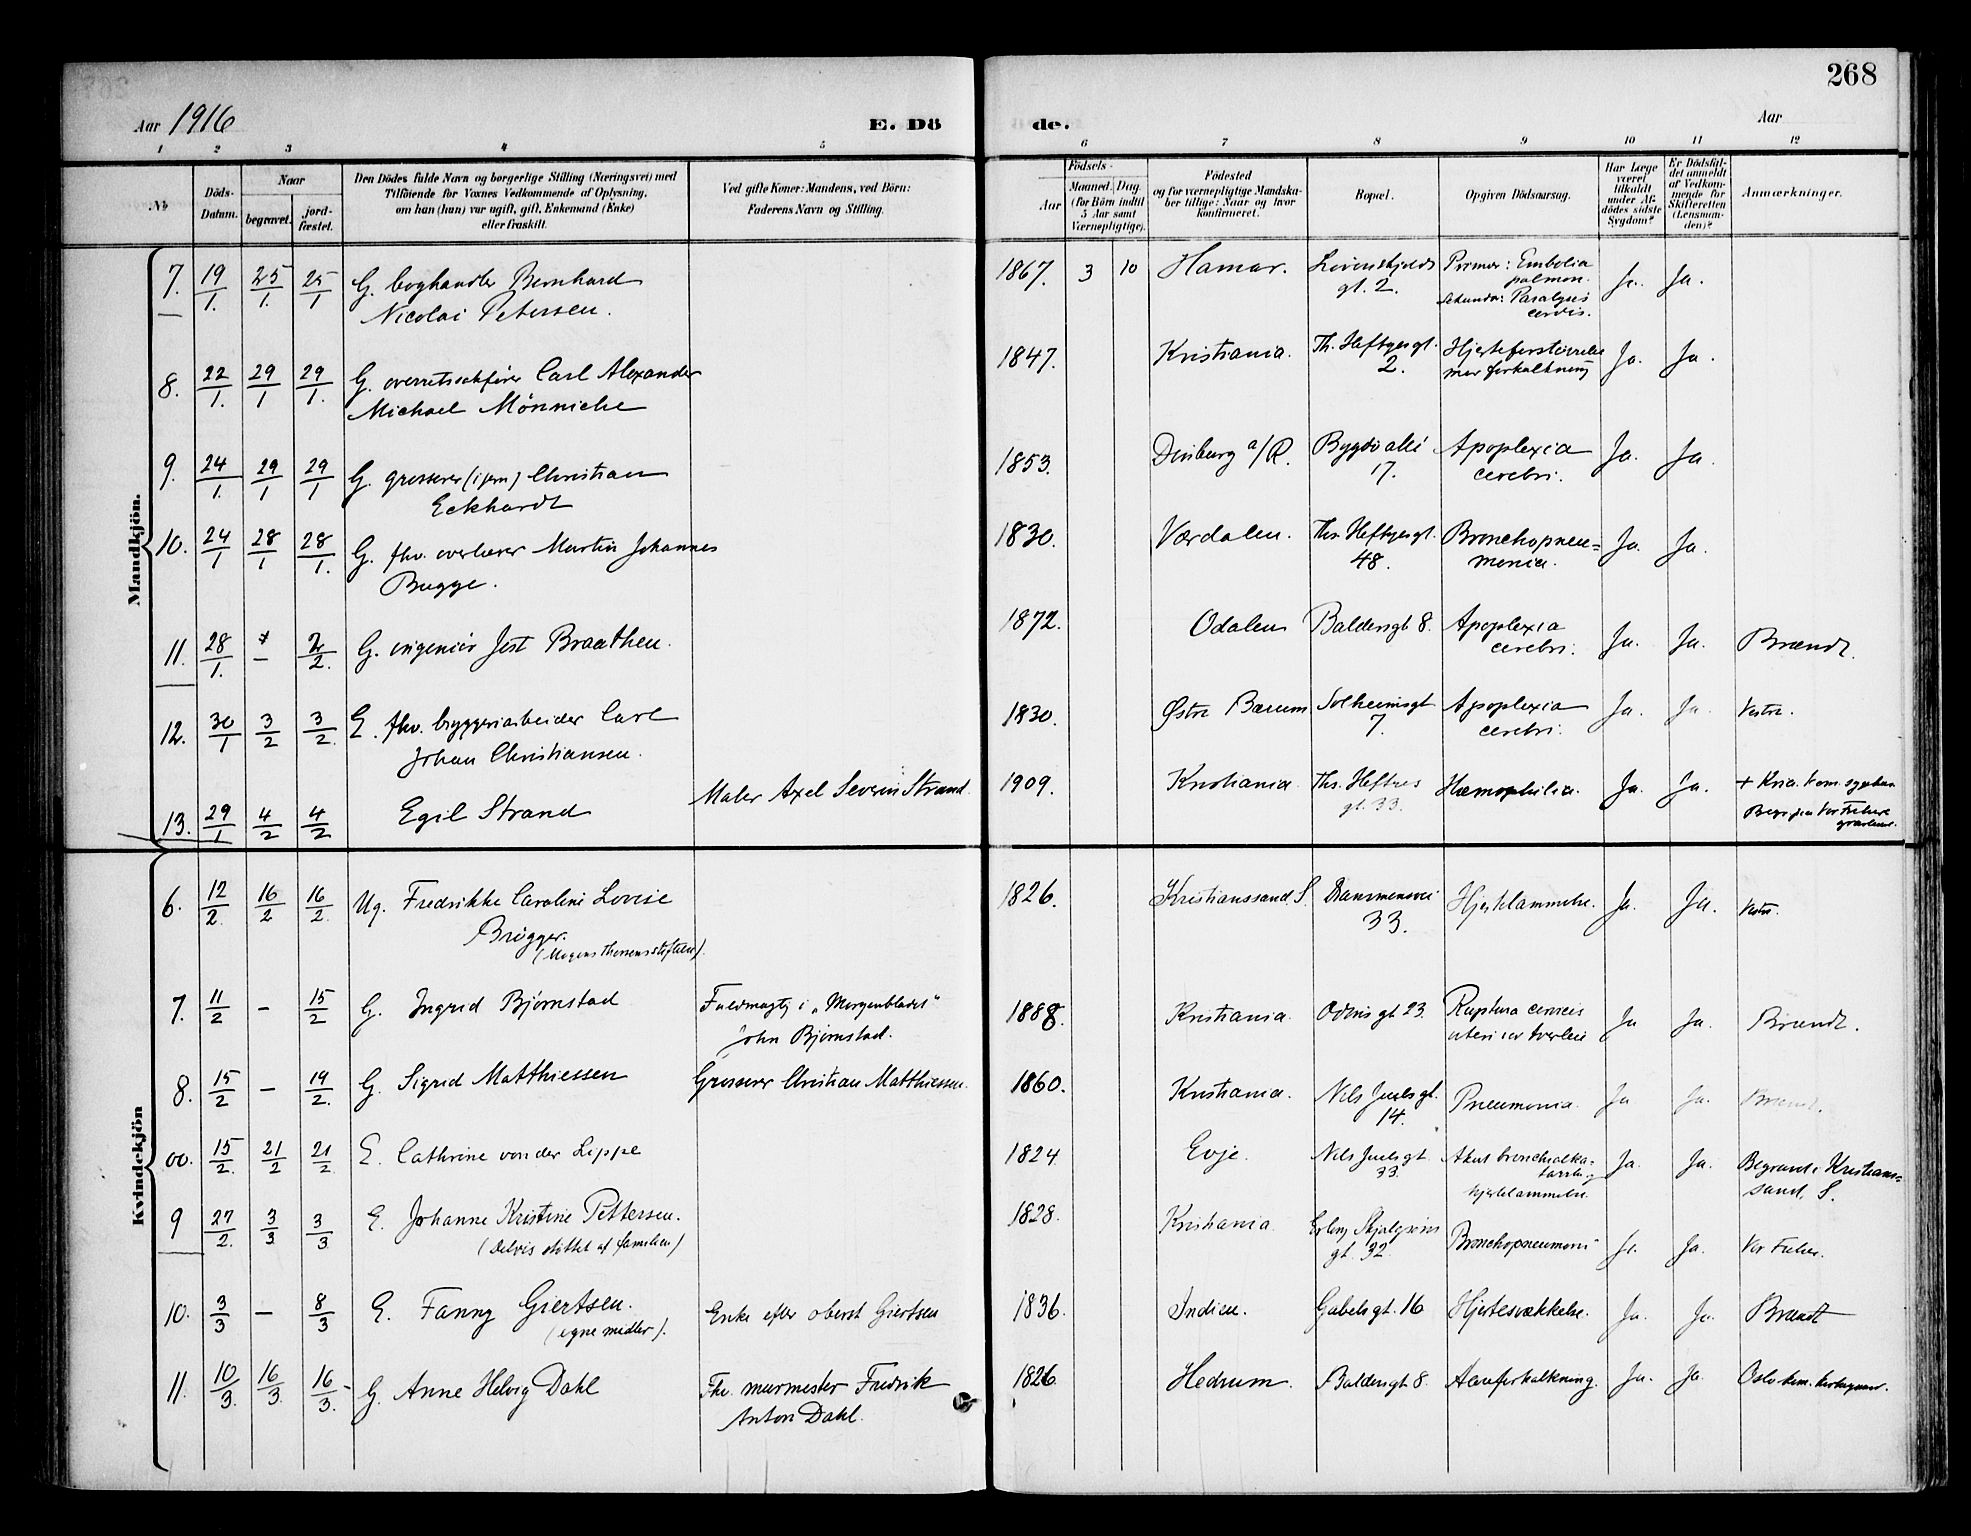 268
Aar 1916
E. Dö
de.
Aar
1 2 3 4 5 6 7 8 9 10 11 12
No
Döds-Datum.
Naar
begravet.
jord-fæstet.
Den Dödes fulde Navn og borgerlige Stilling (Næringsvei) med
Tilföiende for Voxnes Vedkommende af Oplysning,
om han (hun) var ugift, gift, Enkemand (Enke)
eller fraskilt.
Ved gifte Koner: Mandens, ved Börn:
Faderens Navn og Stilling.
Födsels-
Aar
Maaned. Dag.
(for Börn indtil
5 Aar samt
Værnepligtige).
Födested
og for værnepligtige Mandska-
ber tillige: Naar og hvor
konfirmeret.
Bopæl.
Opgiven Dödsaarsag.
Har Læge
været
tilkaldt
under Af-
dödes sidste
Sygdom?
Er Dödsfal-
det anmeldt
af Vedkom-
mende for
Skifteretten
(Lensman-
den)?
Anmærkninger.
Mandkjön.
7. 19/1. 25/1. 25/1 G. boghandler Bernhard
Nicolai Petersen.
1867. 3 10 Hamar. Løvenskjolds
gt. 2.
Primær: Embolia
pulmon.
Sekundær: Paralysis
cordis.
Ja. Ja.
8. 22/1. 29/1 29/1. G. overretssakfører Carl Alexander
Michael Mönniche
1847. Kristiania. Th. Heftyesgt.
2.
Hjerteforstørrelse
Ja. Ja.
9. 24/1. 29/1 29/1 G. grosserer (i jern) Christian
Eckhardt
1853. a/R. Bygdø allé
17.
Apoplexia
cerebri.
Ja. Ja.
10. 24/1 28/1 28/1. G. fhv. overlærer Martin Johannes
Bugge.
1830. Værdalen. Ths. Heftyesgt.
48.
Bronchopneu=
monia.
Ja. Ja.
11. 28/1. * – 2/2. G. ingeniør Jost Braathen.
1872. Odalen Baldersgt 8. Apoplexia
cerebri.
Ja. Ja. Brændt.
12. 30/1 3/2 3/2. E. fhv. bryggeriarbeider Carl
Johan Christiansen.
1830. Østre Bærum Solheimsgt
7.
Apoplexia
cerebri.
Ja. Ja. Vestre.
13. 29/1 4/2 4/2 Egil Strand Maler Axel Severin Strand
1909. Kristiania. Ths. Heftyes
gt. 33.
Hæmophilia. Ja. Ja. + Kria. kom. sygehus
Begr. paa Vor Frelsers
gravlund.
Kvindekjön
6. 12/2. 16/2 16/2. Ug. Fredrikke Caroline Lovise
Brøgger.
(Mogens Thorsens stiftelse).
1826. Kristianssand. S. Drammensvei
33.
Hjertelammelse. Ja. Ja. Vestre.
7. 11/2 – 15/2 G. Ingrid Bjørnstad Fuldmægtig i „Morgenbladet“
John Bjørnstad.
1888. Kristiania. Odins gt 23. Ruptura cervicis
uteri
Ja Ja. Brændt.
8. 15/2 – 19/2. G. Sigrid Matthiessen Grosserer Christian Matthiessen.
1860. Kristiania. Nils Juels gt.
14.
Pneumonia. Ja Ja. Brændt.
00. 15/2. 21/2 21/2 E. Cathrine von der Lippe
1824 Evje. Nils Juels gt.
33.
Akut bronchialka-
tarrh og
hjertelammelse.
Ja. Ja. Begravet i Kristians=
sand. S.
9 27/2. 3/3 3/3 E. Johanne Kristine Pettersen.
(Delvis støttet af familien)
1828. Kristiania Erling Skjalgsøns
gt. 32.
Bronchopneumoni Ja. Ja. Vor Frelser.
10. 3/3 – 8/3 E. Fanny Giertsen.
(egne midler).
Enke efter oberst Giertsen
1836. Indien. Gabels gt. 16 Hjertesvækkelse. Ja. Ja. Brændt
11. 10/3. 16/3. 16/3. G. Anne Helvig Dahl Fhv. murmester Fredrik
Anton Dahl.
1826 Hedrum. Baldersgt 8. Aareforkalkning. Ja. Ja. Oslo kom.